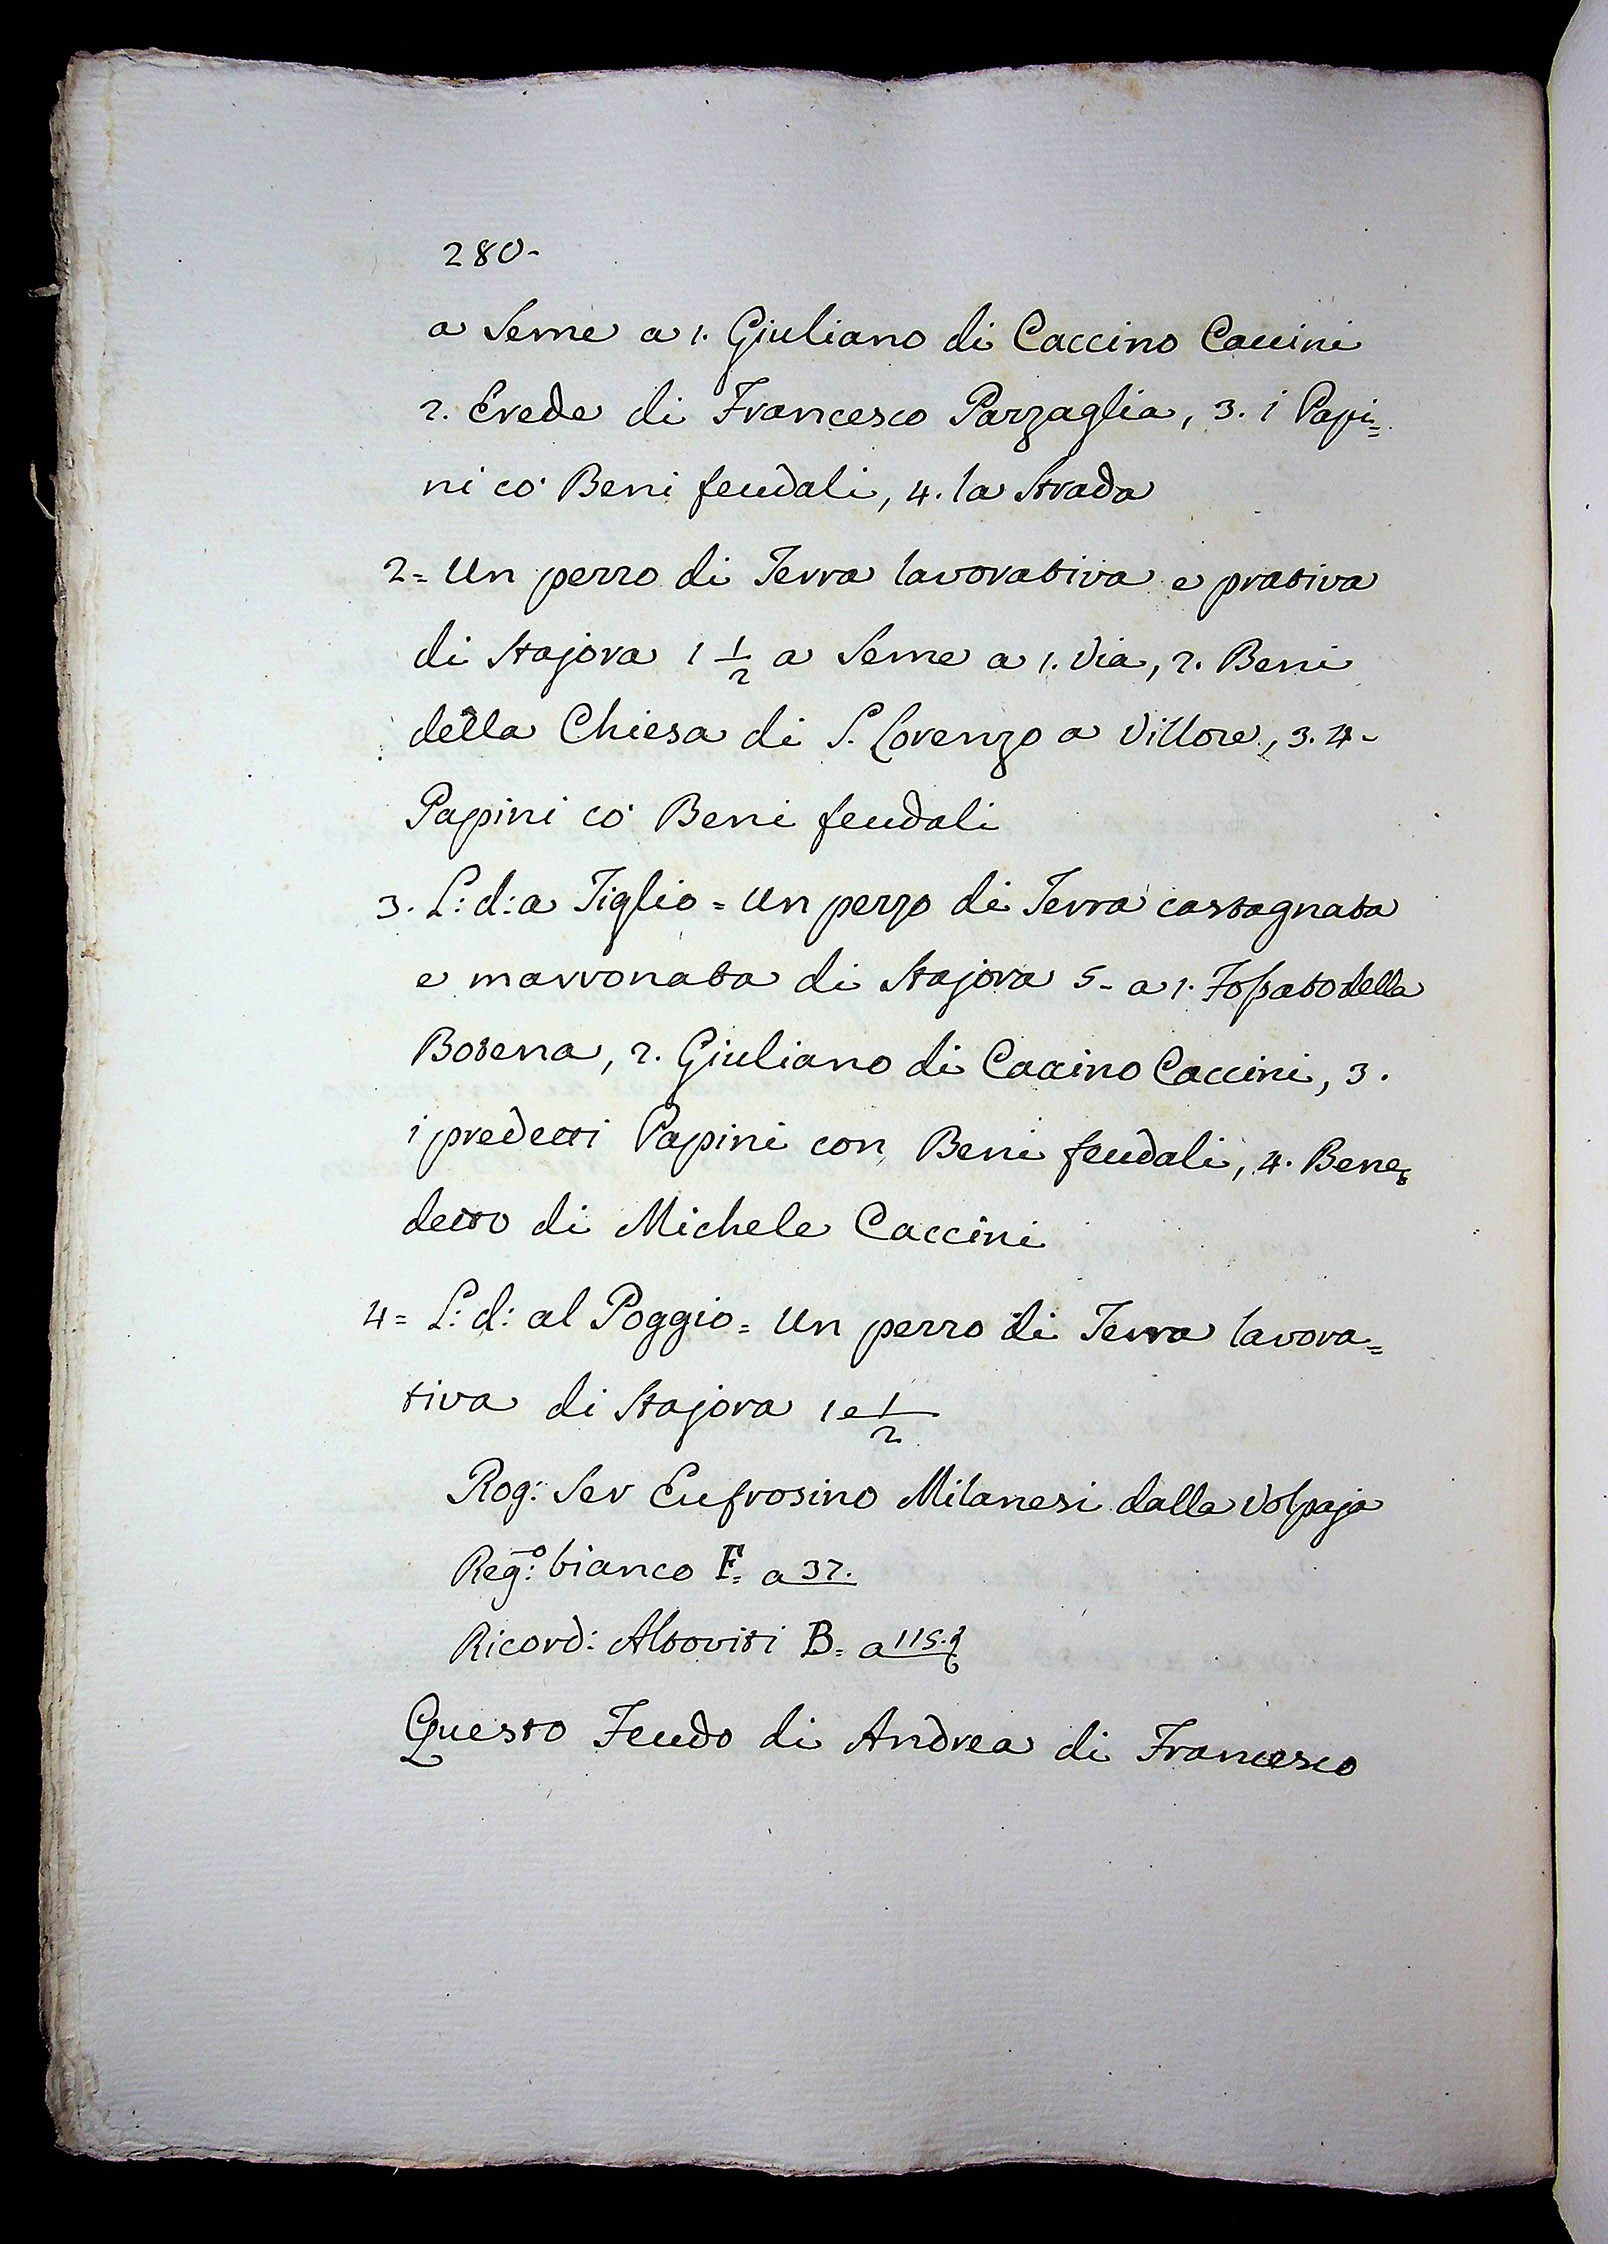 280-
a Seme a 1. Giuliano di Caccino Caccini
2. Erede di Francesco Pazzaglia, 3. i Papi=
ni co' Beni feudali, 4. la Strada
2= Un pezzo di Terra lavorativa e prativa
di Stajora 1 1/2 a Seme a 1. Via, 2. Beni
della Chiesa di S. Lorenzo a Villore, 3. 4-
Papini co' Beni feudali
3. L: d: a Tiglio = Un pezzo di Terra castagnata
e marronata di Stajora 5- a 1. Fossato della
Botena, 2. Giuliano di Caccino Caccini, 3.
i predetti Papini con Beni feudali, 4. Bene=
detto di Michele Caccini
4= L: d: al Poggio= Un pezzo di Terra lavora=
tiva di Stajora 1 e 1/2
Rog: Ser Eufrosino Milanesi dalla Volpaja
Reg:o bianco F= a 37.
Ricord: Altoviti B= a 115.
Questo Feudo di Andrea di Francesco